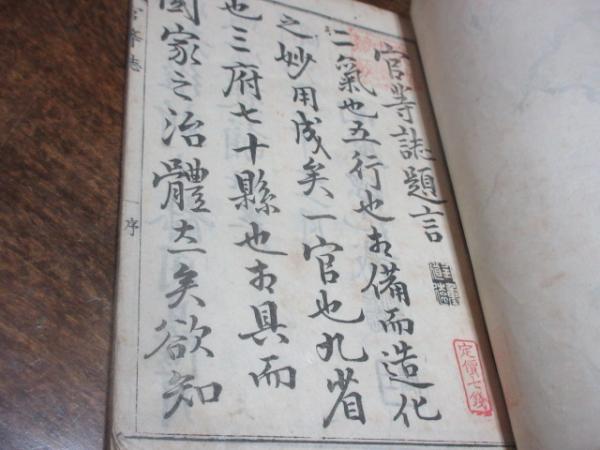 官等誌題言
二氣也五行也相備而造化
之妙用成矣一官也九省
也三府七十縣也相具而
國家之治體立矣欲知
定價七錢
序